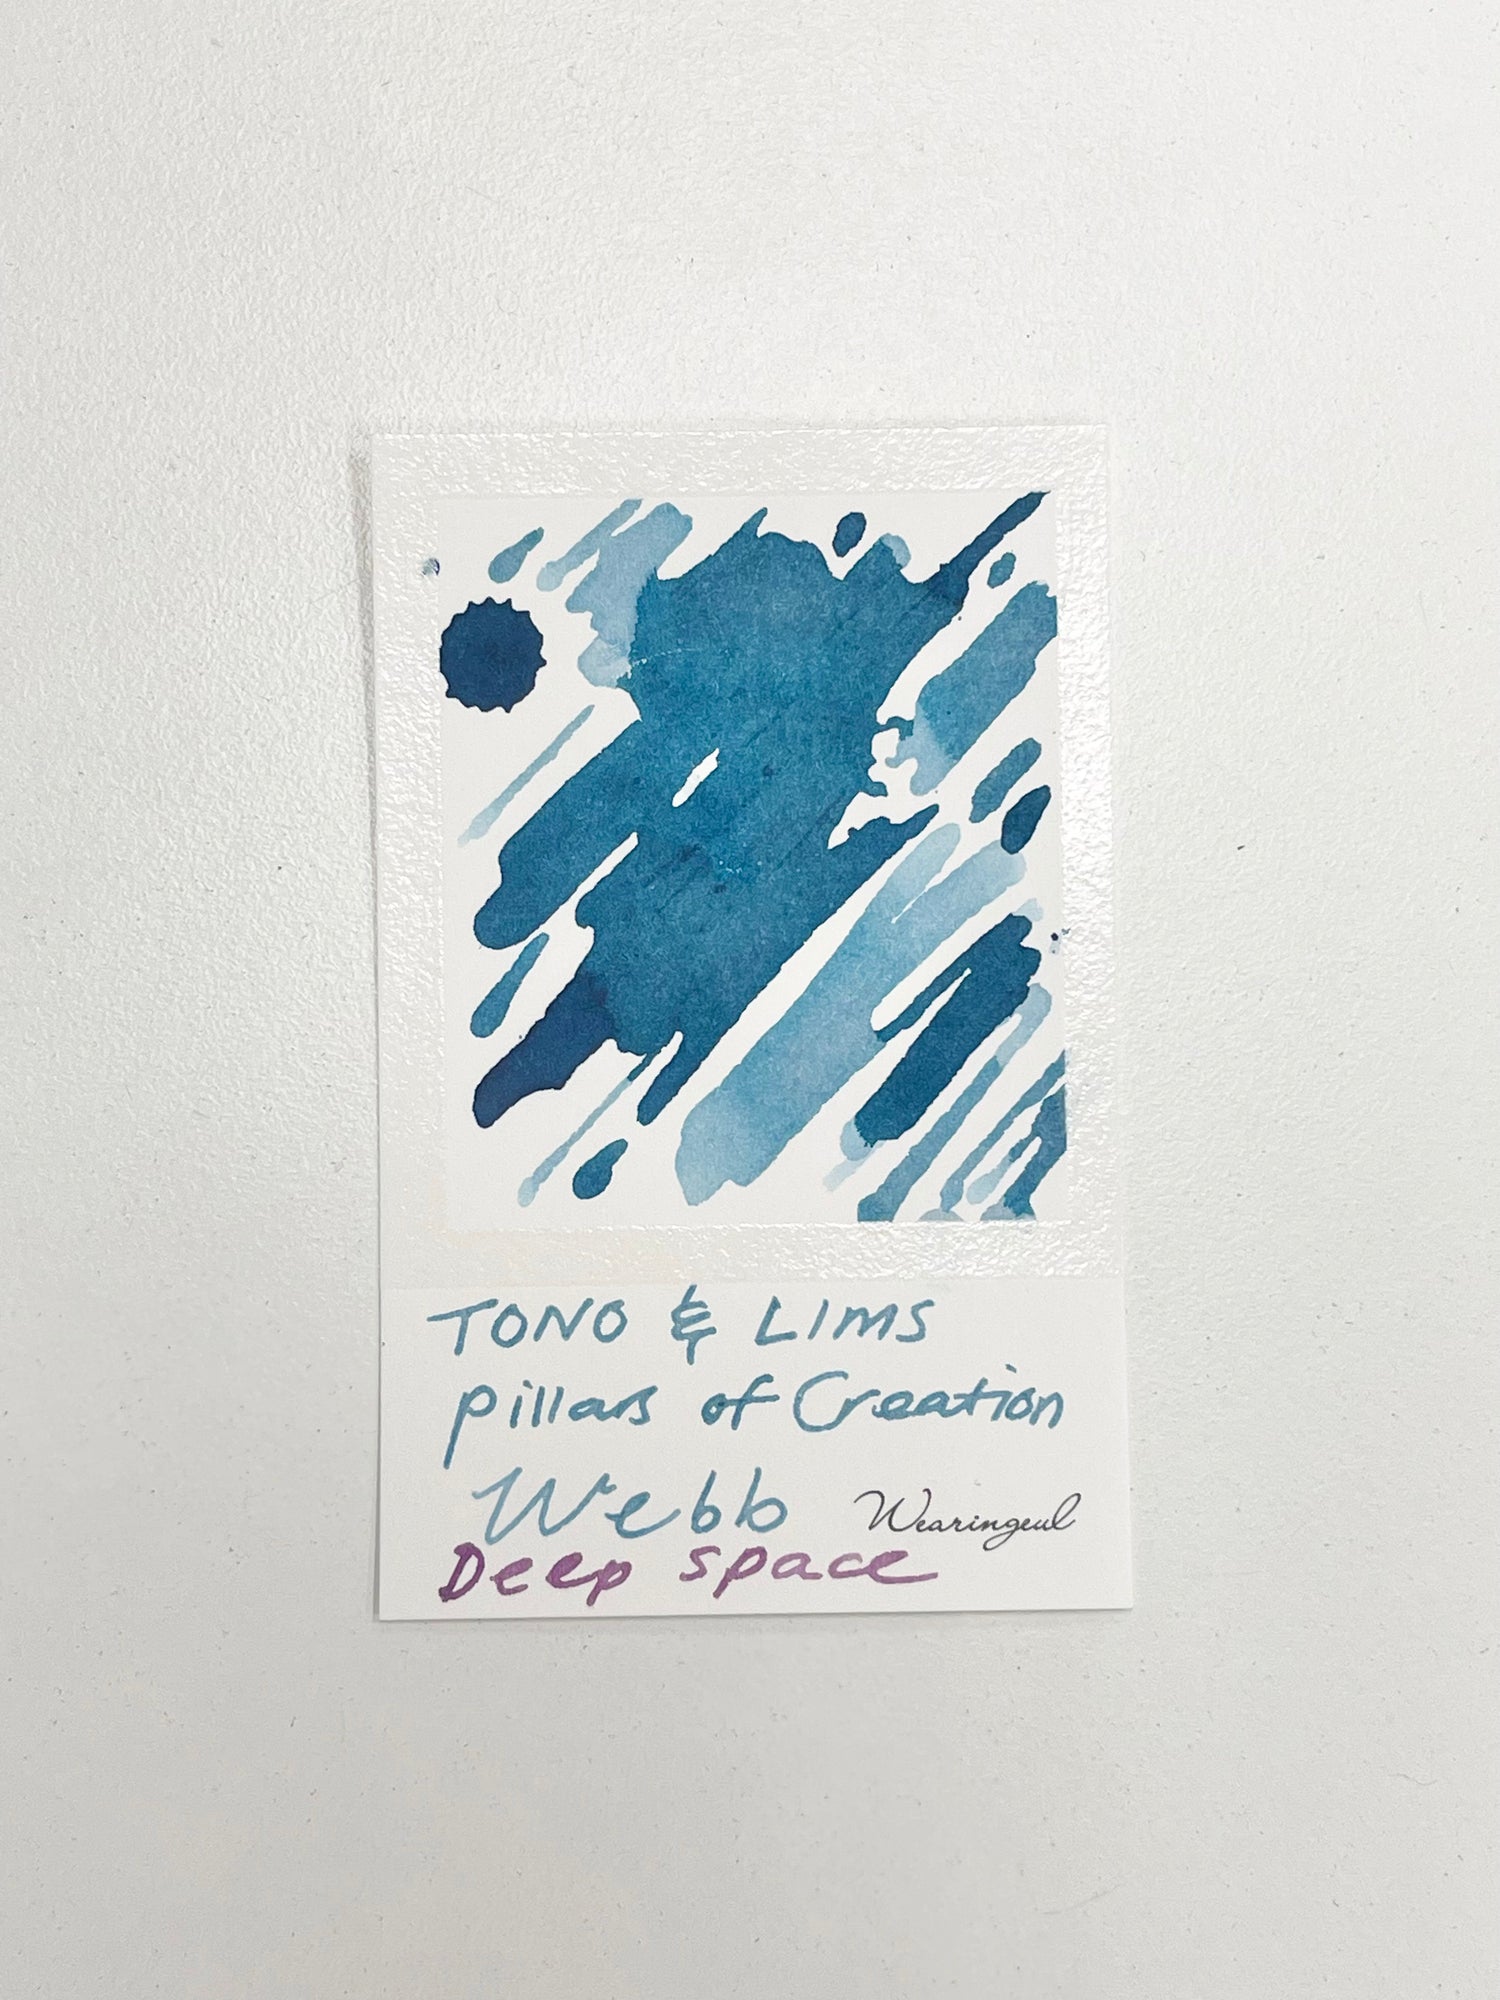 TONO & LIMS
pillars of Creation
Webb
Wearingeul
Deep space